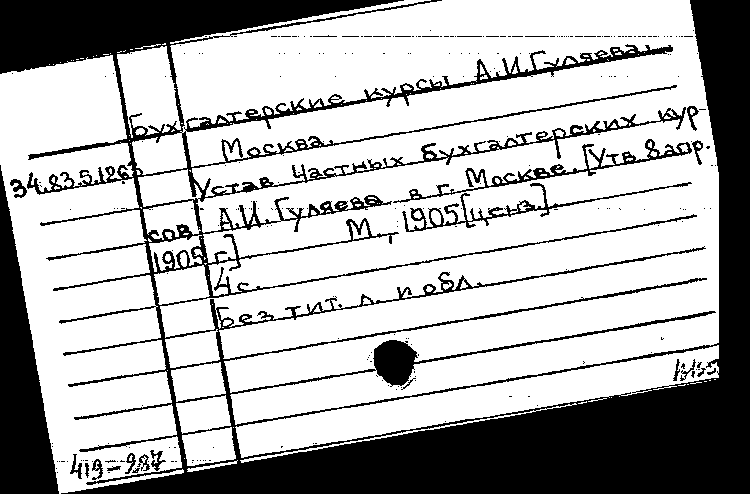 Бухгалтерские курсы А.И.Гуляева.
Москва.
34.83.5.1263
Устав Частных бухгалтерских кур
сов А.И.Гуляева в г. Москве. [Утв. 8 апр.
1905 г.] М., 1905 [ценз.].
4 с.
Без тит. л. и обл.
419-287